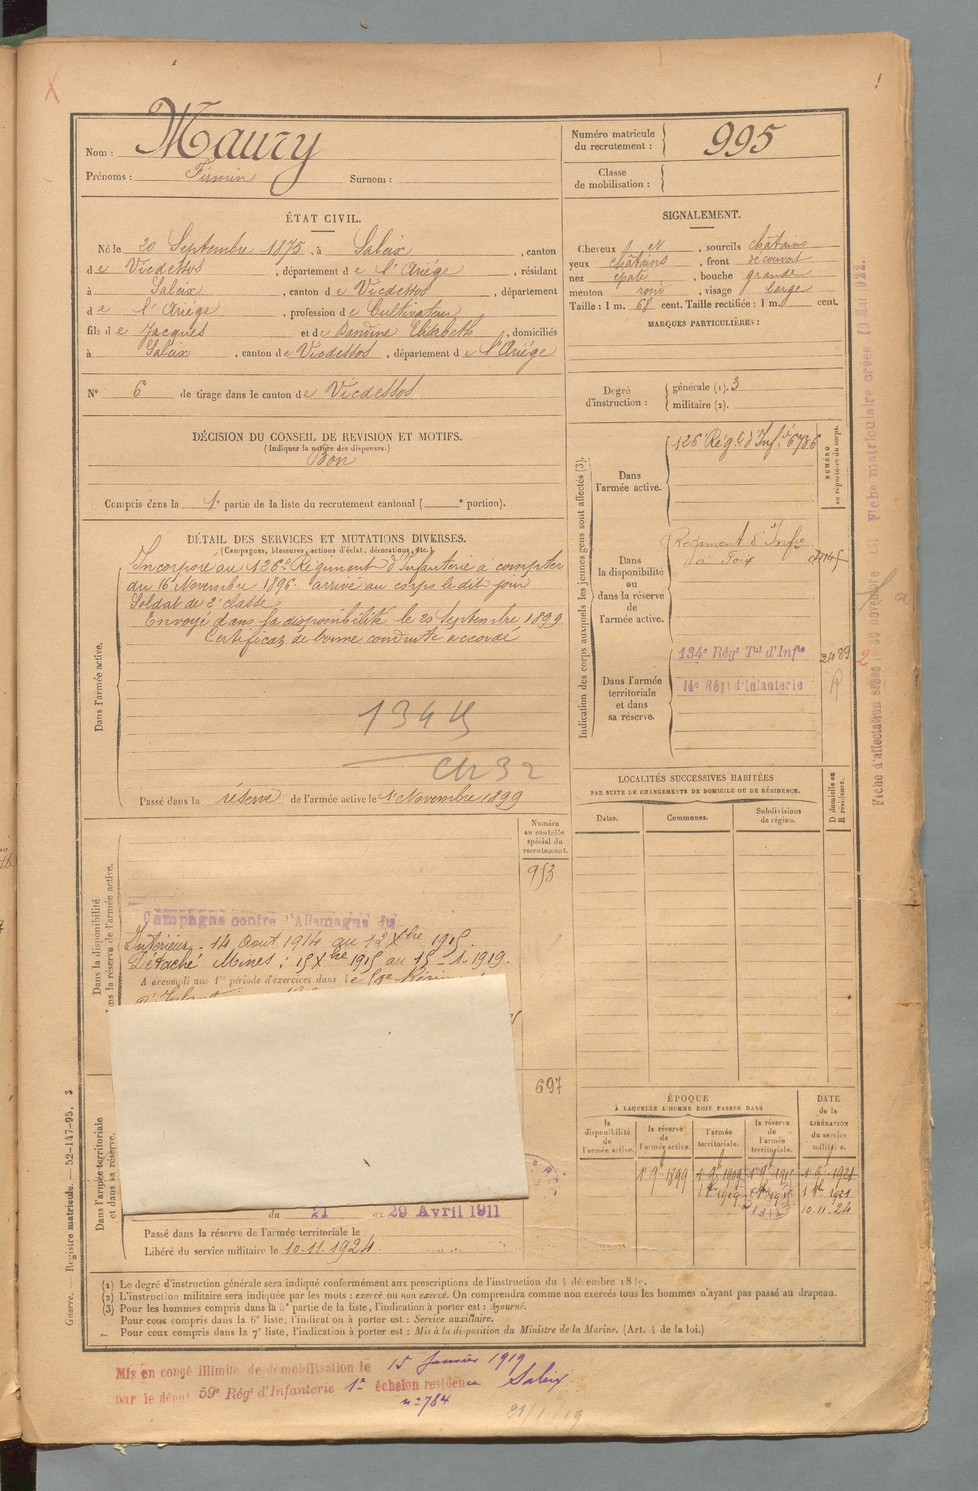 Nom : Maury
Prénoms : Firmin Surnom :
Numéro matricule
du recrutement : 995
Classe
de mobilisation :
ÉTAT CIVIL.
Né le 20 Septembre 1875, à Saleix, canton
de Vicdessos, département de l'Ariège, résidant
à Saleix, canton de Vicdessos, département
de l'Ariège, profession de Cultivateur
fils de Jacques et de Dandine Elisabeth, domiciliés
à Saleix, canton de Vicdessos, département de l'Ariège
N° 6 de tirage dans le canton de Vicdessos
SIGNALEMENT.
Cheveux et, sourcils châtains
yeux châtains, front découvert
nez épaté, bouche grande
menton rond, visage large
Taille : 1 m. 68 cent. Taille rectifiée : 1 m. cent.
MARQUES PARTICULIÈRES :
Degré
d'instruction :
générale (1). 3
militaire (2).
DÉCISION DU CONSEIL DE REVISION ET MOTIFS.
(Indiquer la nature des dispenses.)
Bon
Compris dans la 1e partie de la liste du recrutement cantonal ( e portion).
DÉTAIL DES SERVICES ET MUTATIONS DIVERSES.
(Campagnes, blessures, actions d'éclat, décorations, etc.)
Dans l'armée active.
Incorporé au 126e Régiment d'Infanterie à compter
du 16 Novembre 1896. arrivé au corps le dit jour
Soldat de 2e classe
Envoyé dans la disponibilité le 20 Septembre 1899
Certificat de bonne conduite accordé
1344
Passé dans la réserve de l'armée active le 1r Novembre 1899
Indication des corps auxquels les jeunes gens sont affectés (3).
NUMÉRO
au répertoire du corps.
Dans
l'armée active.
126e Régt d'Infie 6786
Dans
la disponibilité
ou
dans la réserve
de
l'armée active.
Régiment d'Infie
à Foix
Dans l'armée
territoriale
et dans
sa réserve.
134e Régt Tal d'Infie 2489
14e Régt d'Infanterie
LOCALITÉS SUCCESSIVES HABITÉES
PAR SUITE DE CHANGEMENTS DE DOMICILE OU DE RÉSIDENCE.
Dates. Communes. Subdivisions
de région.
D domicile ou
R résidence.
Numéro
au contrôle
spécial du
recrutement.
953
Dans la disponibilité
dans la réserve de l'armée active.
Campagne contre l'Allemagne du
Intérieur. 14 Août 1914 au Xbre 1915.
Détaché Mines : 15 Xbre 1915 au 15-1-1919.
A accompli une 1re période d'exercices dans le
697
Dans l'armée territoriale
et dans sa réserve.
du 21 au 29 Avril 1911
Passé dans la réserve de l'armée territoriale le
Libéré du service militaire le 10.11.1924
ÉPOQUE
À LAQUELLE L'HOMME DOIT PASSER DANS
la
disponibilité
de
l'armée active.
la réserve
de
l'armée active.
l'armée
territoriale.
la réserve
de
l'armée
territoriale.
DATE
de la
LIBÉRATION
du service
militaire.
1r 9bre 1899 1r 9bre 1909 1921
1921
10.11.24
(1) Le degré d'instruction générale sera indiqué conformément aux prescriptions de l'instruction du 4 décembre
(2) L'instruction militaire sera indiquée par les mots : exercé ou non exercé. On comprendra comme non exercés tous les hommes n'ayant pas passé au drapeau.
(3) Pour les hommes compris dans la 5e partie de la liste, l'indication à porter est : Ajourné.
Pour ceux compris dans la 6e liste, l'indication à porter est : Service auxiliaire.
Pour ceux compris dans la 7e liste, l'indication à porter est : Mis à la disposition du Ministre de la Marine. (Art. 4 de la loi.)
Mis en congé illimité de démobilisation le 15 Janvier 1919
par le dépôt 59e Régt d'Infanterie 1er échelon residence Saleix
n° 784
21/1/19
Guerre. Registre matricule. — 52-147-95. 3
Fiche d'affectation créée le 30 novembre
Fiche matriculaire créée 10 Mai 1922.